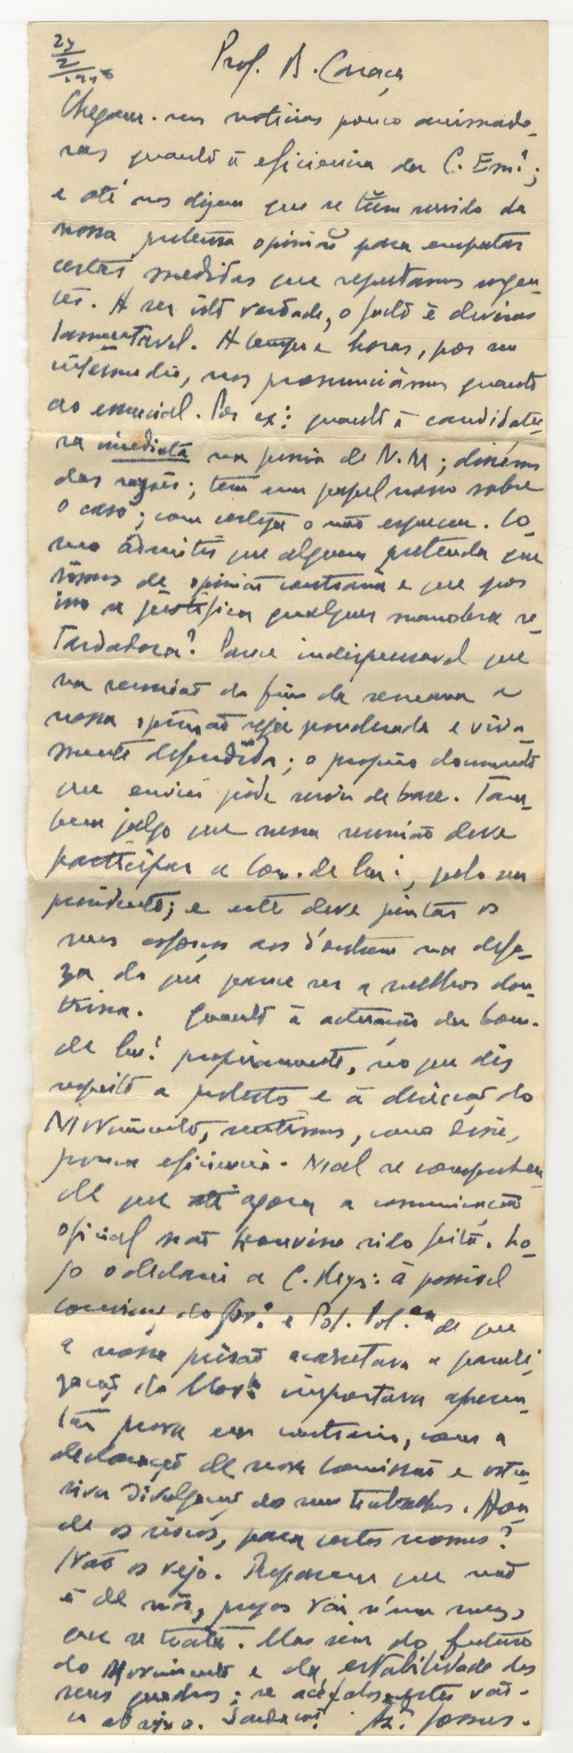 27/2/1948
Prof. B. Caraça
Chegam-nos noticias pouco animado-
ras quanto à eficiencia da C. Ex.;
e até nos dizem que se têm servido da
nossa pretensa opinião para empatar
certas medidas que reputamos urgen-
tes. A ser isto verdade, o facto é deveras
lamentavel. A tempo e horas, por seu
intermedio, nos pronunciámos quanto
ao essencial. Por ex: quanto à candidatu-
ra imediata na pessoa de N. M; dissémos
das razões; tem um papel nosso sobre
o caso; com certeza o não esqueceu. Co-
mo admitir que alguem pretenda que
somos de opinião contraria e que por
isso se justifica qualquer manobra re-
tardadora? Parece indispensavel que
na reunião do fim da semana a
nossa opinião seja ponderada e viva-
mente defendida; o proprio documento
que enviei póde servir de base. Tam-
bem julgo que nessa reunião deve
participar a Com. de Lx.ª, pelo seu
presidente; e este deve juntar os
seus esforços aos d'outrem na defe-
za do que parece ser a melhor dou-
trina. Quanto à actuação da Com.
de Lx.ª propriamente, no que diz
respeito a protestos e à direcção do
Movimento, sentimos, como disse,
pouca eficiencia. Mal se compreen-
de que até agora a comunicação
oficial não houvesse sido feita. Lo-
go o declarei a C. Reys: à possivel
convicção do Gov.º e Pol. Pol.ca de que
a nossa prisão acarretava a parali-
zação do Mov.to importava apresen-
tar prova em contrario, com a
declaração de nova Comissão e osten-
siva divulgação dos seus trabalhos. Aon-
de os riscos, para certos nomes?
Não os vejo. Reparem que não
é de nós, presos vai n'um mez,
que se trata. Mas sim do futuro
do Movimento e da estabilidade dos
seus quadros; se acefalos estes vão-
se abaixo. Saudações